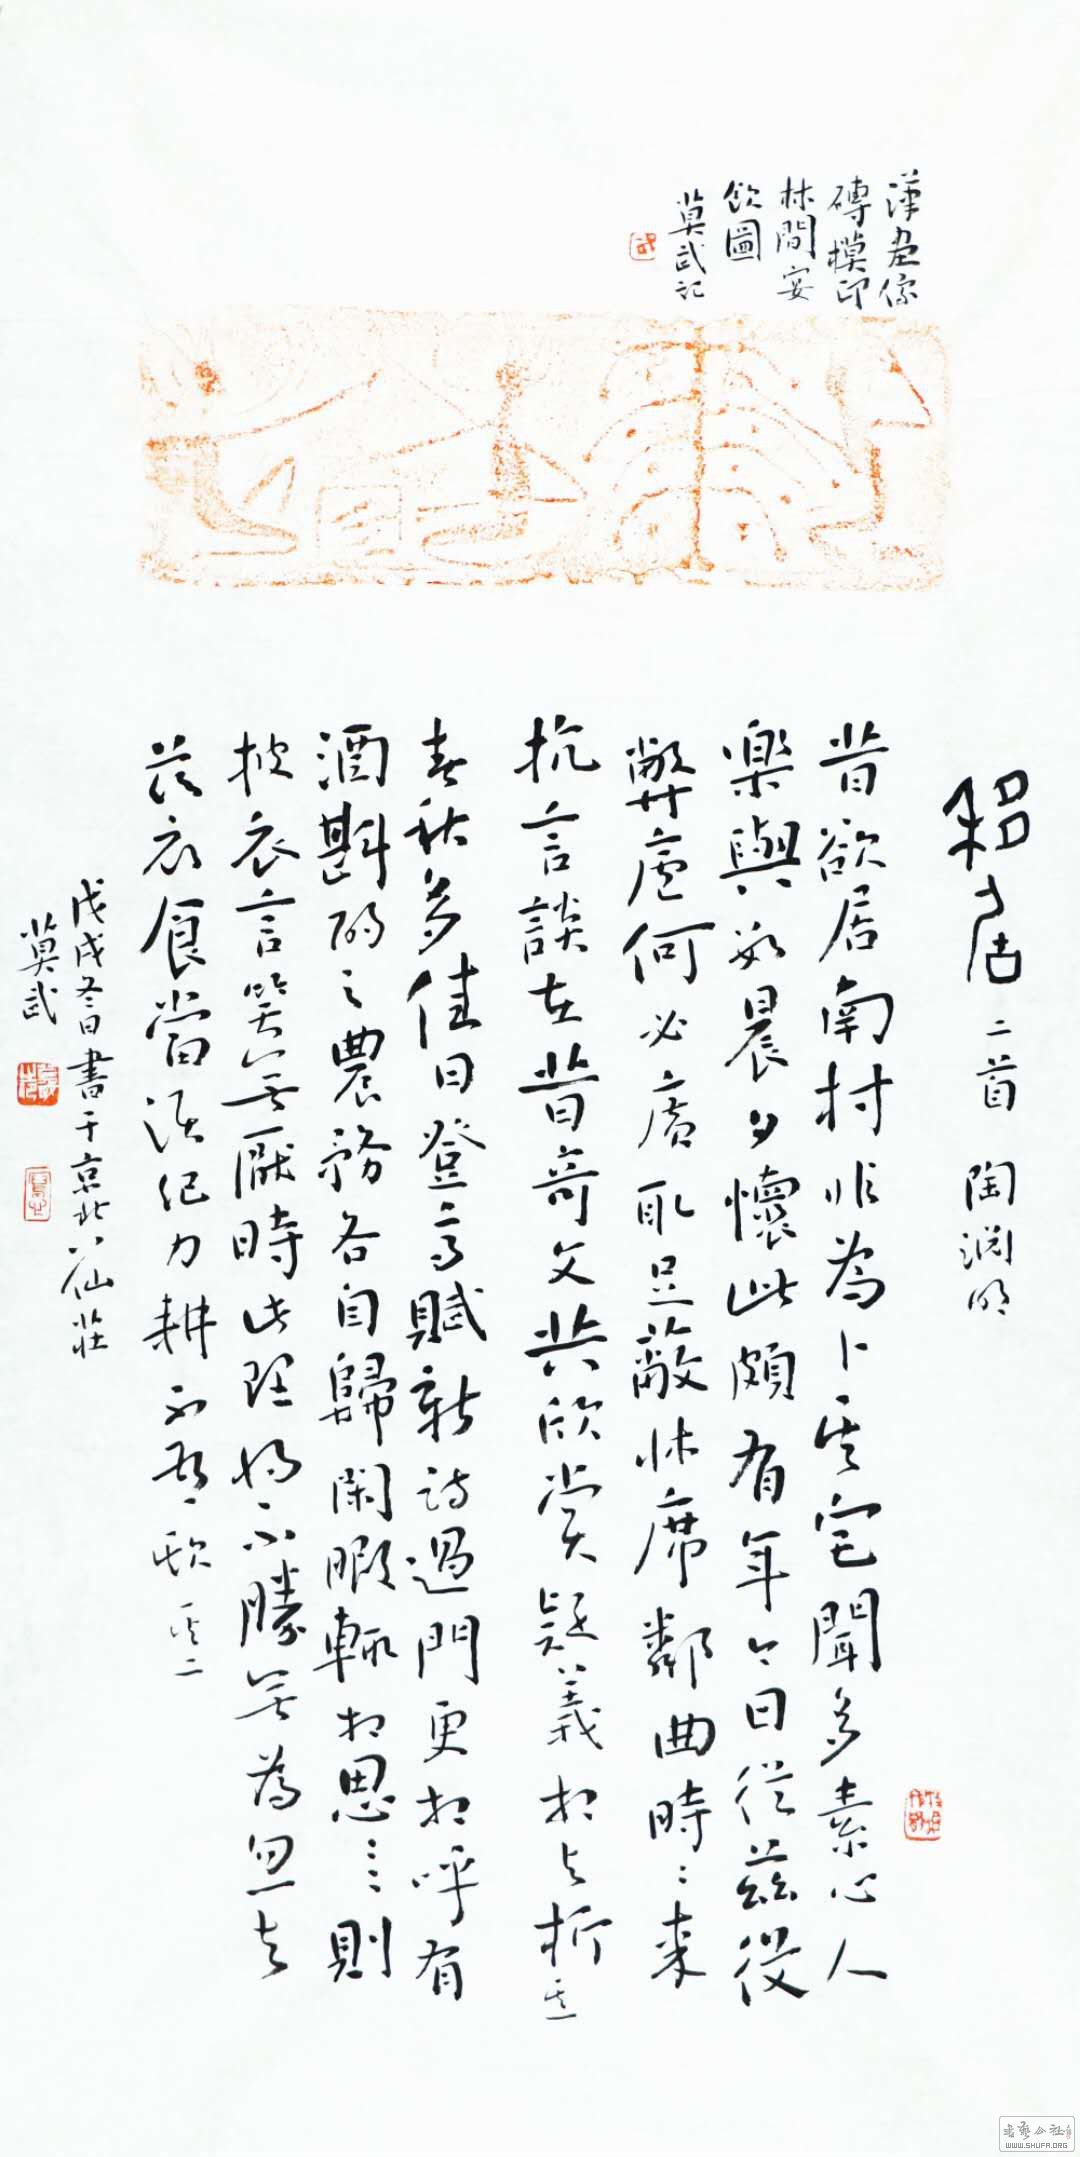 漢畫像
磚摸印
林間宴
飲圖
莫武記
武
移居二首 陶淵明
昔欲居南村非為卜其宅聞多素心人
樂與數晨夕懷此頗有年今日從茲役
弊廬何必廣取足蔽牀席鄰曲時〻來
抗言談在昔奇文共欣賞疑義相與析其一
春秋多佳日登高賦新詩過門更相呼有
酒斟酌之農務各自歸閑暇輒相思〻〻則
披衣言笑無厭時此理將不勝無為忽去
茲衣食當須紀力耕不吾欺其二
戊戌冬日書于京北八仙莊
莫武
書藝公社
WWW.SHUFA.ORG